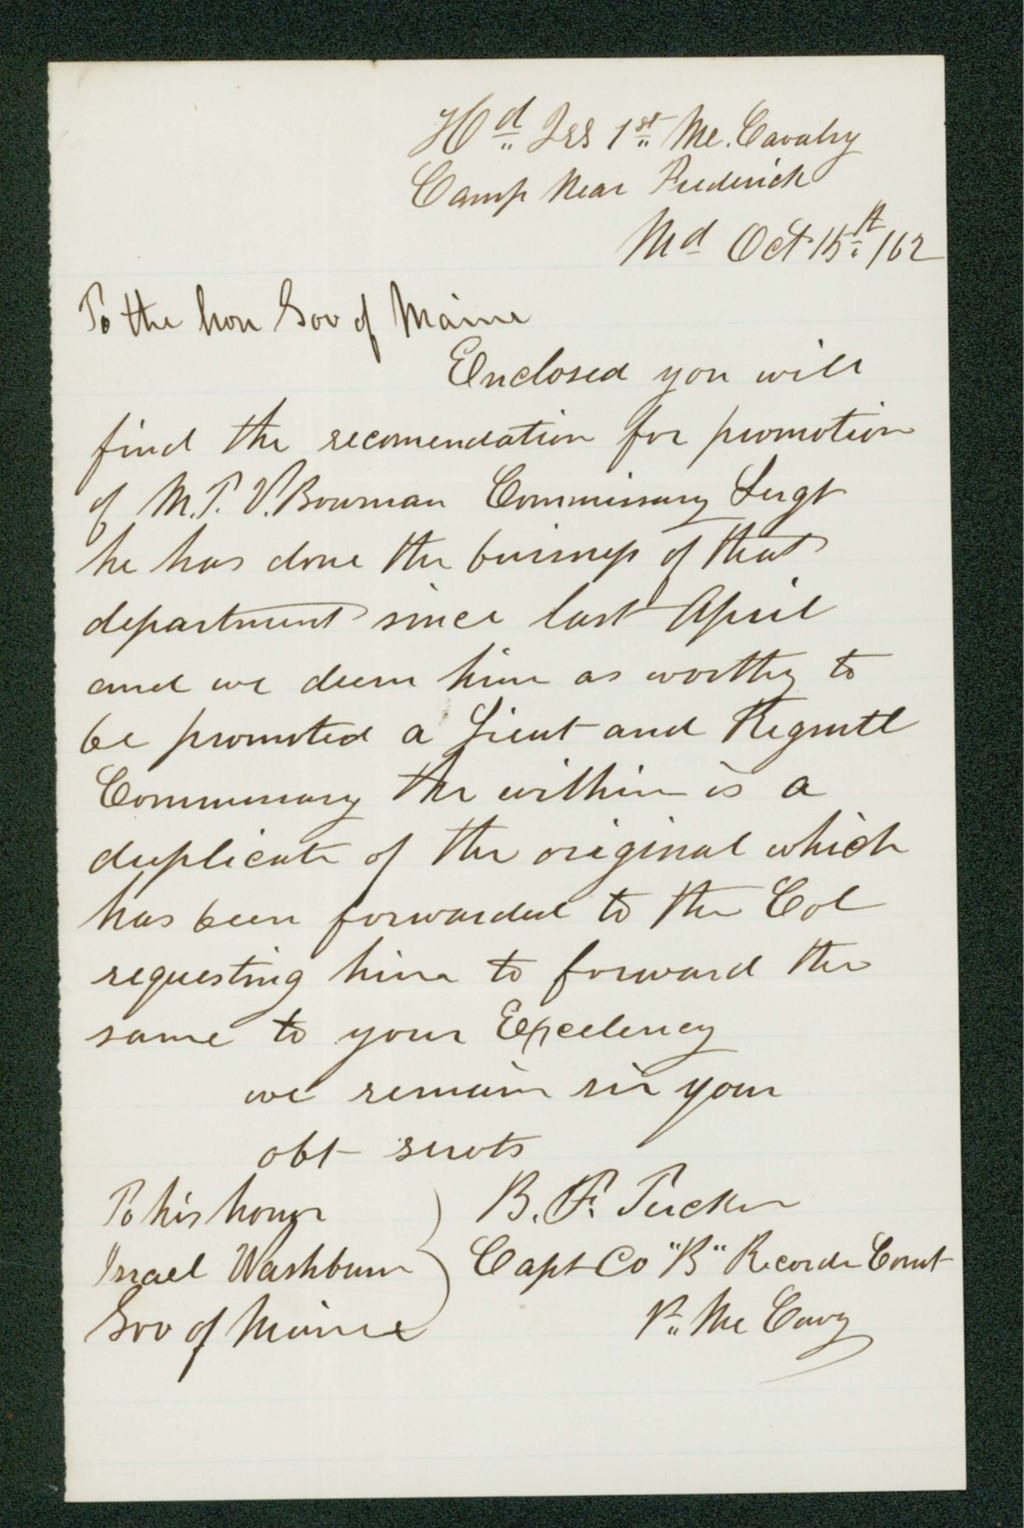 Hd Qrs 1st Me. Cavalry
Camp Near Frederick
Md Oct 15th /62
To the hon Gov of Maine
Enclosed you will
find the recomendation for promotion
of M. T. V. Bowman Commissary Sergt
he has done the buisness of that
department since last April
and we deem him as worthy to
be promoted a Lieut and Regmtl
Commissary the within is a
duplicate of the original which
has been forwarded to the Col
requesting him to forward the
same to your Excelency
we remain sir your
obt servts
To his honor
Israel Washburn
Gov of Maine
B. F. Tucker
Capt Co "B"
Me Cavy